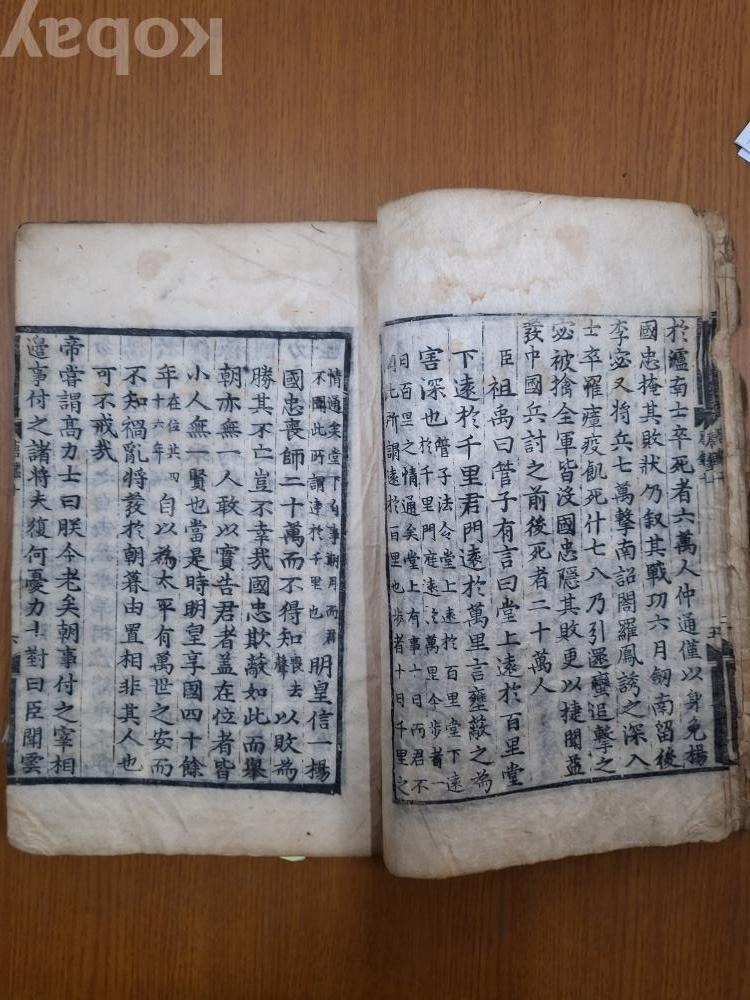 kobay
於瀘南士卒死者六萬人仲通僅以身免楊
國忠掩其敗狀仍叙其戰功六月劒南留後
李宓又將兵七萬擊南詔閤羅鳳誘之深入
士卒罹瘴疫飢死什七八乃引還蠻追擊之
宓被擒全軍皆沒國忠隱其敗更以捷聞益
發中國兵討之前後死者二十萬人
臣祖禹曰管子有言曰堂上遠於百里堂
下遠於千里君門遠於萬里言壅蔽之為
害深也管子法令堂上遠於百里堂下遠
於千里門庭遠於萬里今步者一
日百里之情通矣堂上有事十日而君不
聞此所謂遠於百里也步者十日千里之
情通矣堂下有事期月而君
不聞此所謂遠於千里也明皇信一楊
國忠喪師二十萬而不得知喪去聲以敗為
勝其不亡豈不幸哉國忠欺蔽如此而舉
朝亦無一人敢以實告君者蓋在位者皆
小人無一賢也當是時明皇享國四十餘
年在位共四十六年自以為太平有萬世之安而
不知禍亂將發於朝暮由置相非其人也
可不戒哉
帝嘗謂高力士曰朕今老矣朝事付之宰相
邊事付之諸將夫復何憂力士對曰臣聞雲